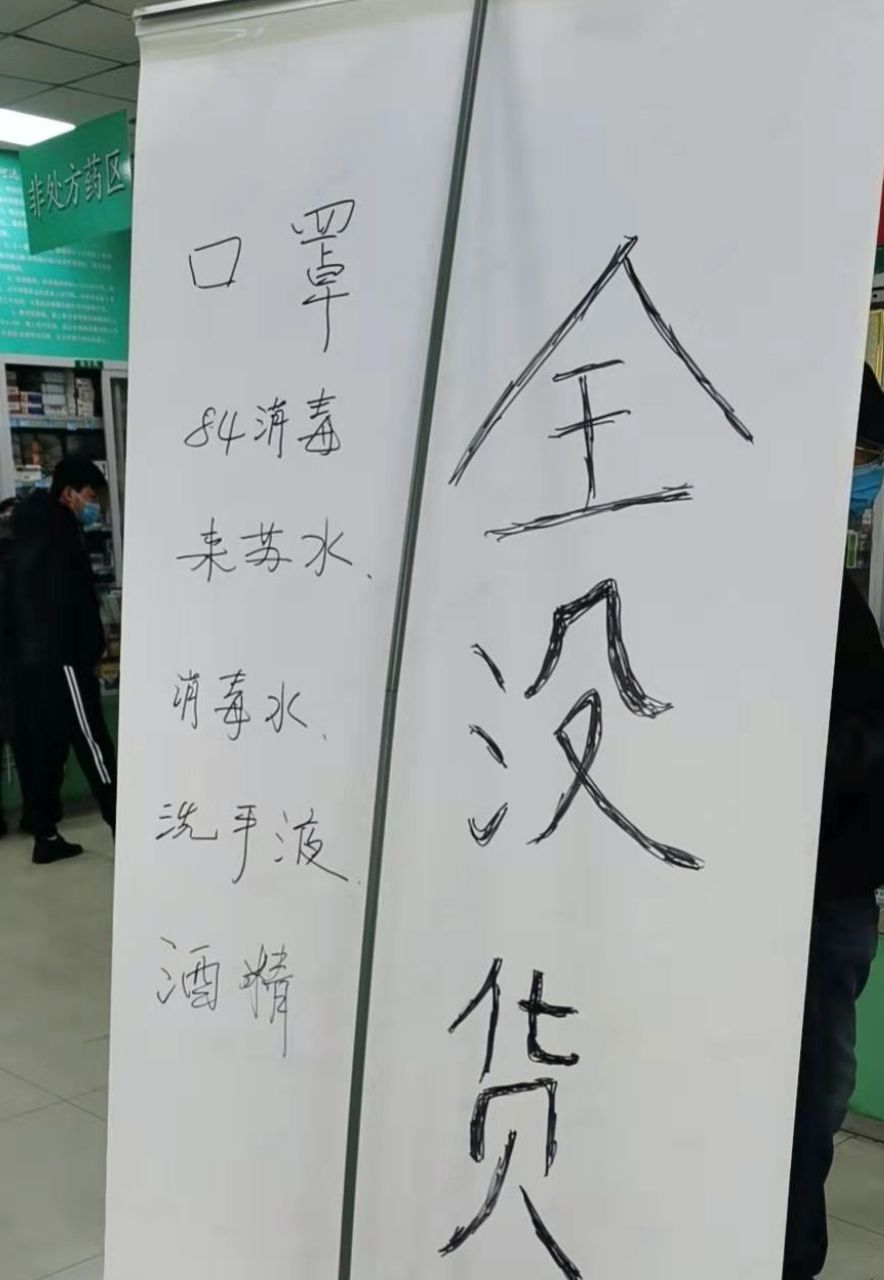 非处方药区
口罩
84消毒
来苏水、
消毒水、
洗手液、
酒精
全没货